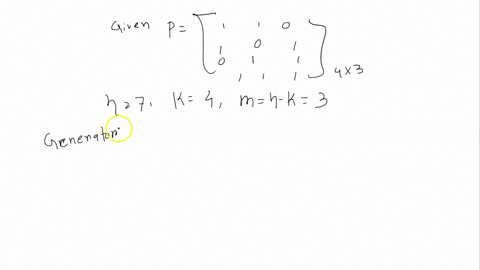 Given P = [ 1 1 0
1 0 1
0 1 1
1 1 1 ] 4x3
n = 7, K = 4, m = n-K = 3
Generator